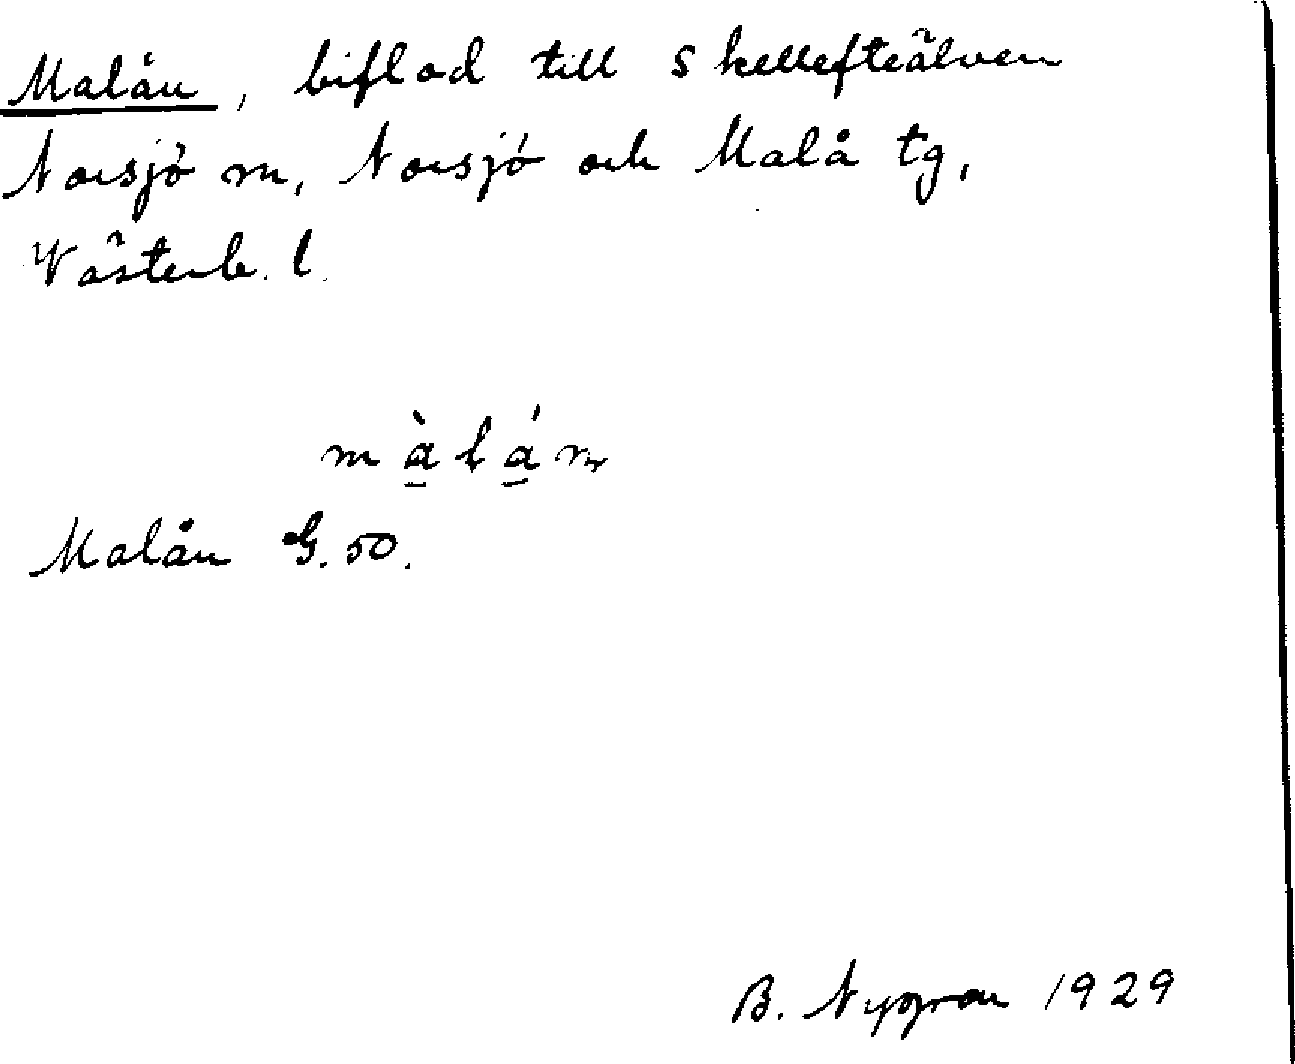 Malån, biflod till Skellefteälven
Norsjö m, Norsjö och Malå tg,
Västerb. l.
m à̱ l á̱ n
Malån G. 50.
B. Nygren 1929